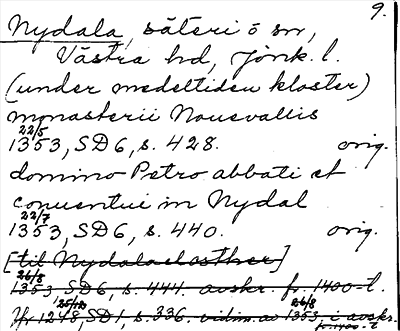 9.
Nydala, säteri o sn,
Västra hd, Jönk. l.
(under medeltiden kloster)
monasterii Nouevallis
22/5
1353, SD6, s. 428. orig.
domino Petro abbati et
conuentui in Nydal
22/7
1353, SD6, s. 440. orig.
[til Nydala closther]
26/8
1353, SD6, s. 444. avskr. fr. 1400-t.
25/12 26/8
Jfr 1248, SD1, s. 336. vidim. av 1353, i avskr.
fr. 1400-t.